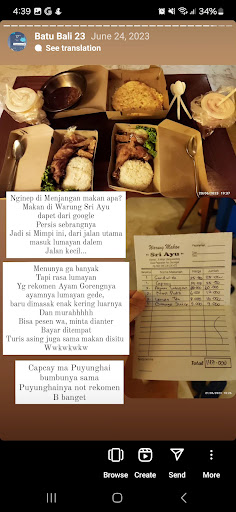 4:39
34%
Batu Bali 23 June 24, 2023
See translation
Nginep di Menjangan makan apa?
Makan di Warung Sri Ayu
dapet dari google
Persis sebrangnya
Jadi si Mimpi ini, dari jalan utama
masuk lumayan dalem
Jalan kecil...
Menunya ga banyak
Tapi rasa lumayan
Yg rekomen Ayam Gorengnya
ayamnya lumayan gede,
baru dimasak enak kering luarnya
Dan murahhhhh
Bisa pesen wa, minta dianter
Bayar ditempat
Turis asing juga sama makan disitu
Wwkwkwkw
Capcay ma Puyunghai
bumbunya sama
Puyunghainya not rekomen
B banget
Warung Makan
Sri Ayu
Browse Create Send More